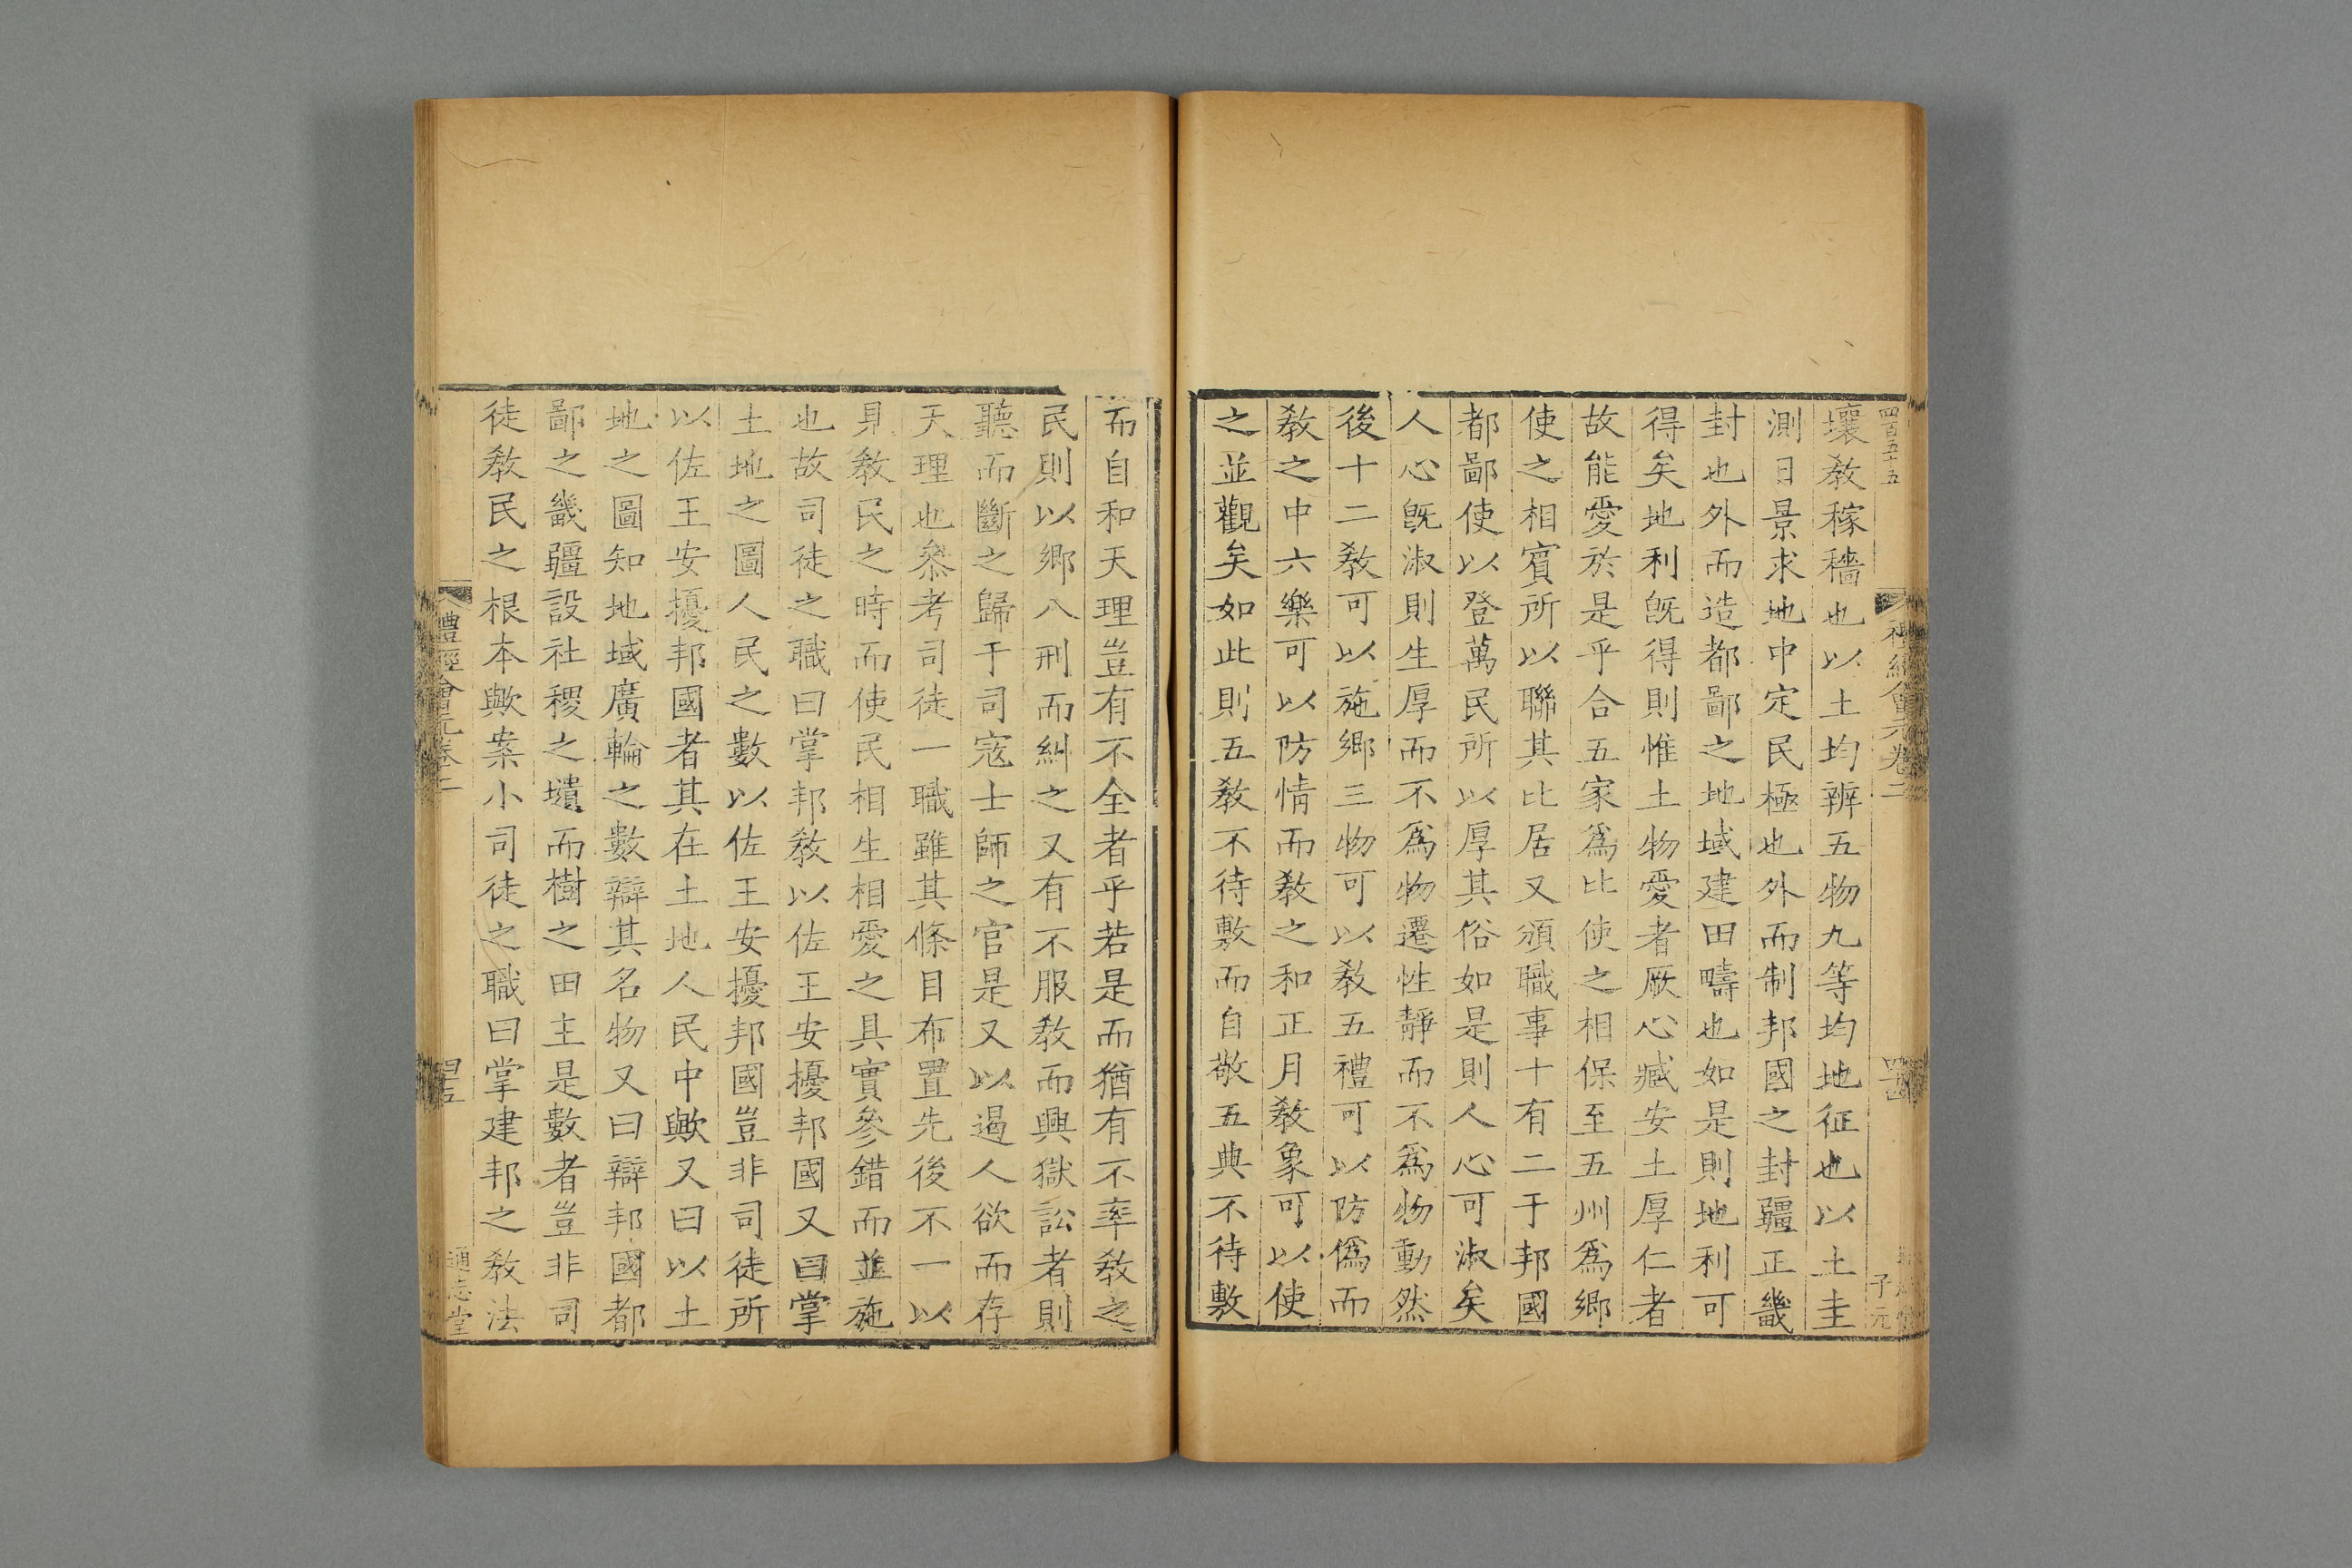 四百五十五
禮經會元卷二
子元
壤敎稼穡也以土均辨五物九等均地征也以土圭
測日景求地中定民極也外而制邦國之封疆正畿
封也外而造都鄙之地域建田疇也如是則地利可
得矣地利旣得則惟土物愛者厥心臧安土厚仁者
故能愛於是乎合五家爲比使之相保至五州爲鄉
使之相賓所以聯其比居又頒職事十有二于邦國
都鄙使以登萬民所以厚其俗如是則人心可淑矣
人心旣淑則生厚而不爲物遷性靜而不爲物動然
後十二敎可以施鄉三物可以敎五禮可以防僞而
敎之中六樂可以防情而敎之和正月敎象可以使
之並觀矣如此則五敎不待敷而自敬五典不待敷
而自和天理豈有不全者乎若是而猶有不率敎之
民則以鄉八刑而糾之又有不服敎而興獄訟者則
聽而斷之歸于司寇士師之官是又以遏人欲而存
天理也叅考司徒一職雖其條目布置先後不一以
見敎民之時而使民相生相愛之具實參錯而並施
也故司徒之職曰掌邦敎以佐王安擾邦國又曰掌
土地之圖人民之數以佐王安擾邦國豈非司徒所
以佐王安擾邦國者其在土地人民中歟又曰以土
地之圖知地域廣輪之數辯其名物又曰辯邦國都
鄙之畿疆設社稷之壝而樹之田主是數者豈非司
徒敎民之根本歟案小司徒之職曰掌建邦之敎法
禮經會元卷二
通志堂